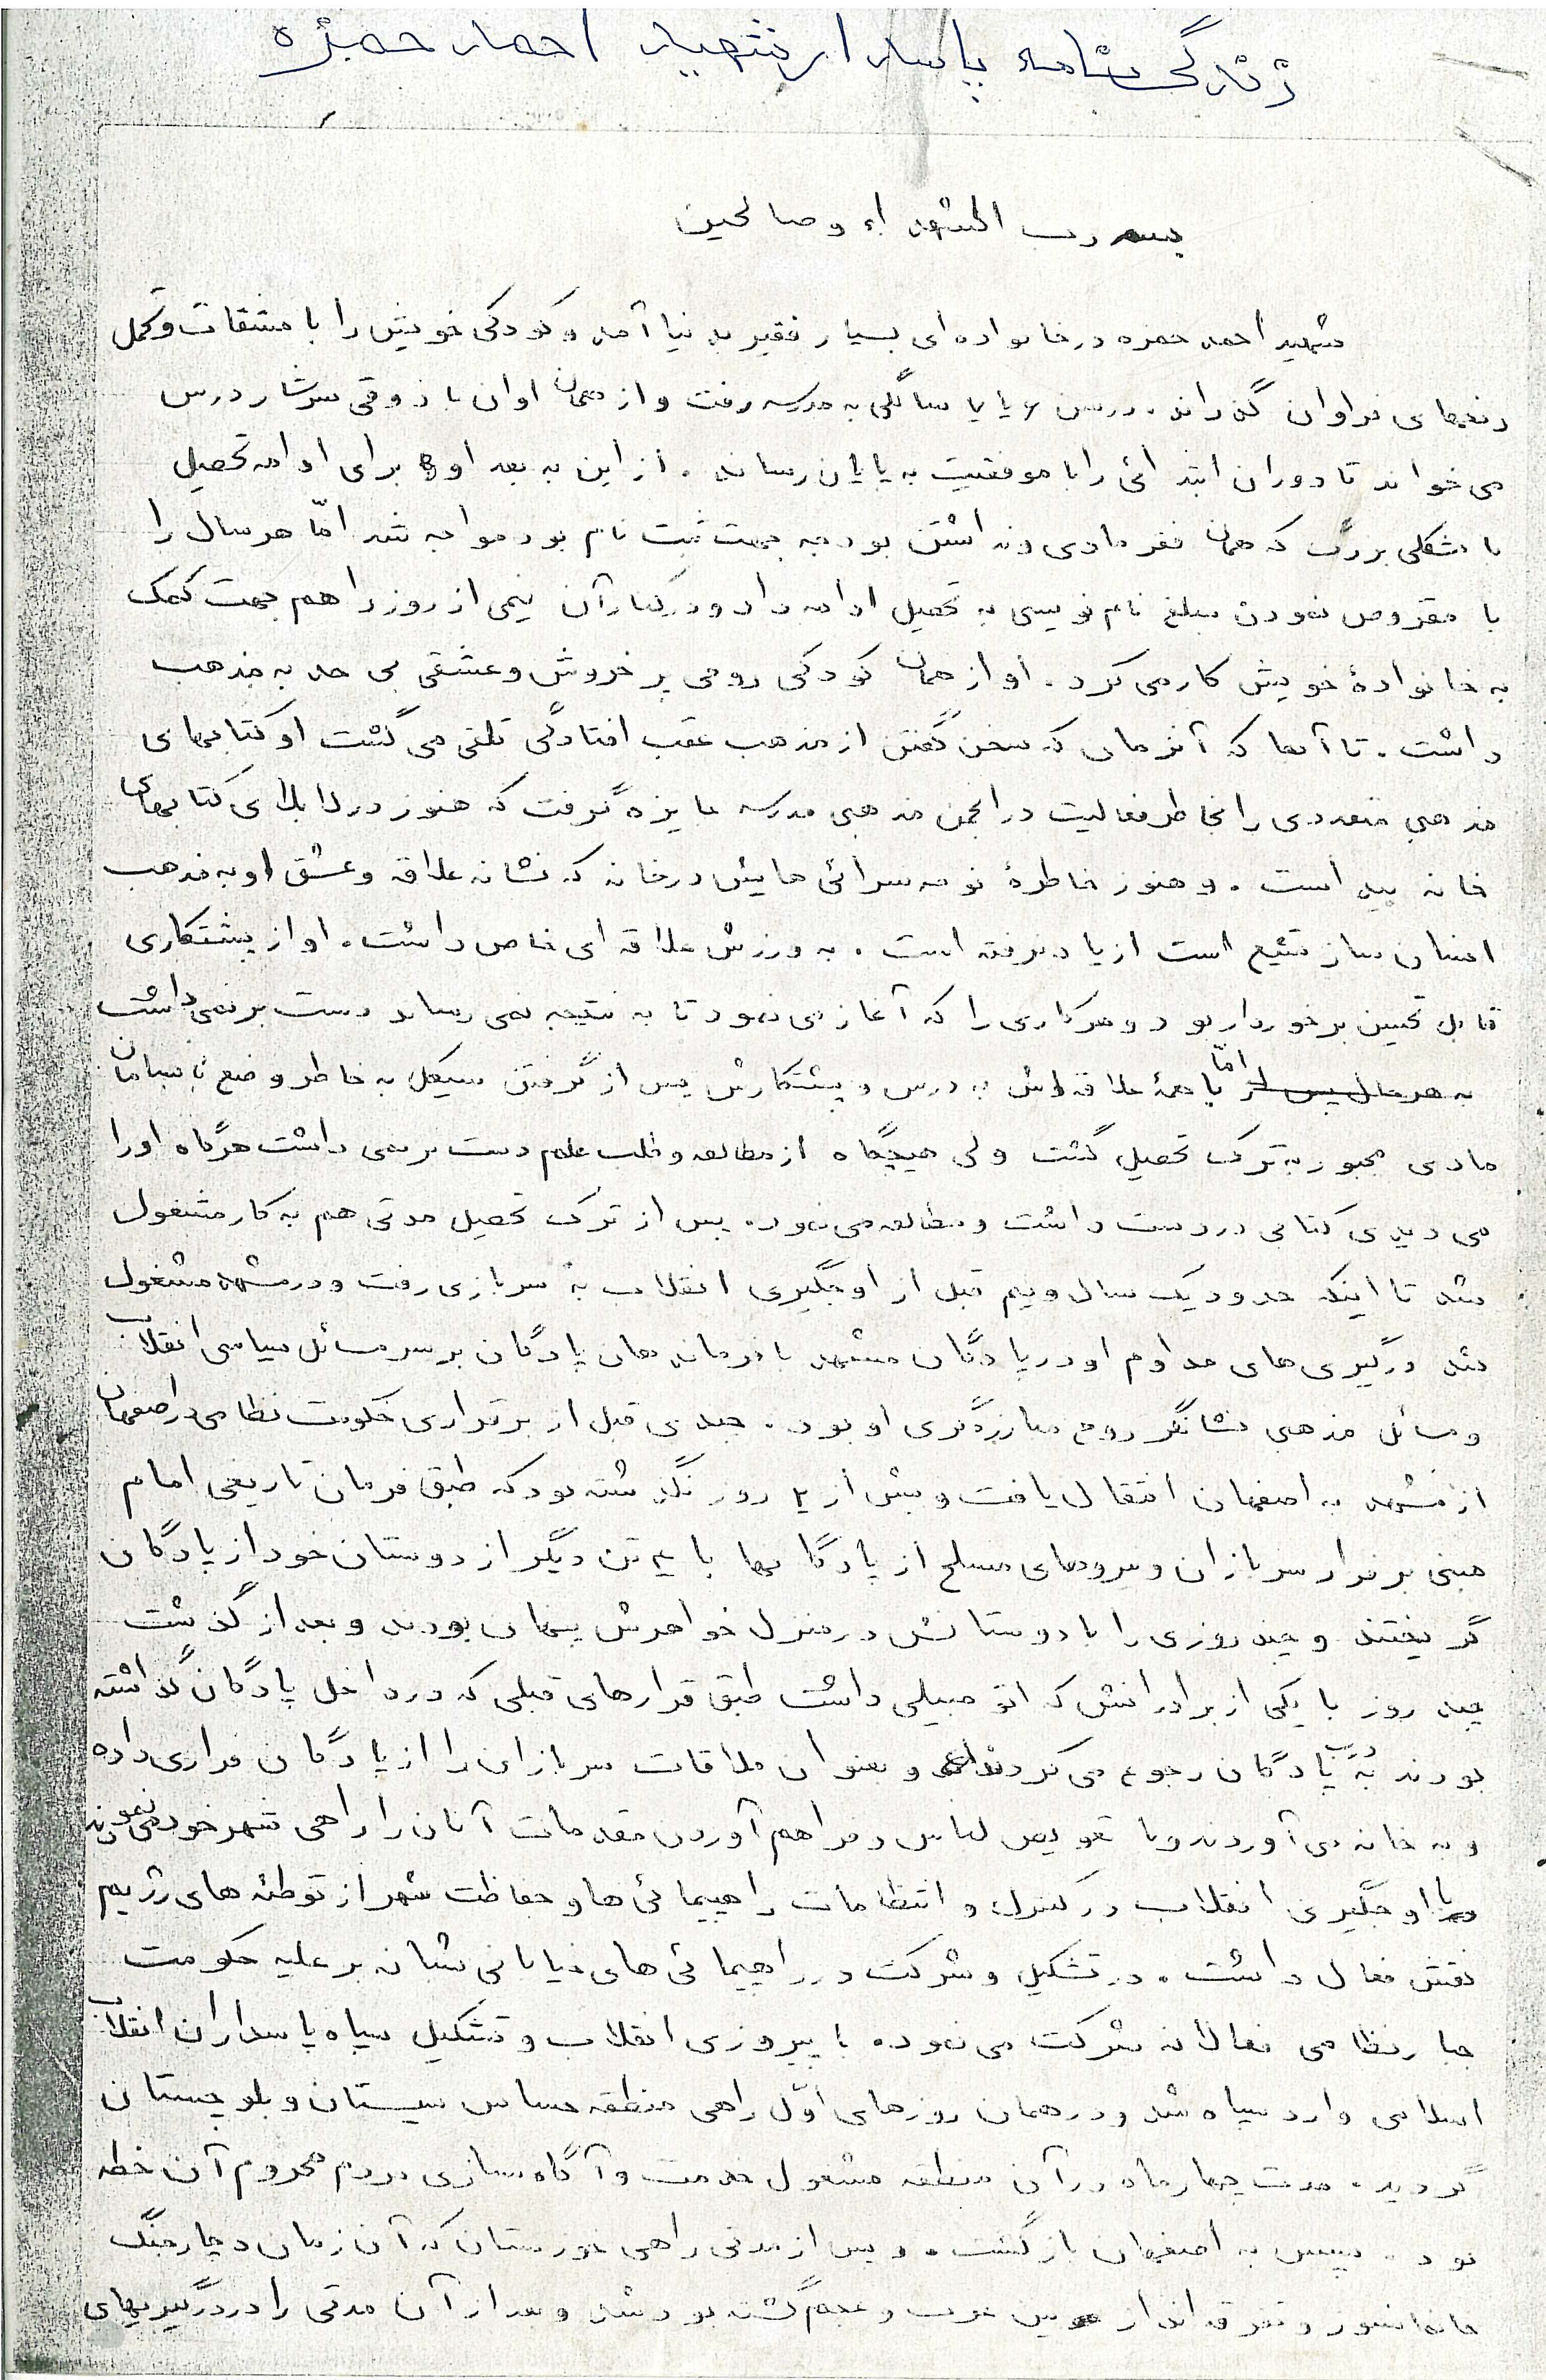 زندگی نامه پاسدار شهید احمد حمزه
بسم رب الشهداء و صالحین
شهید احمد حمزه در خانواده ای بسیار فقیر بدنیا آمد و کودکی خویش را با مشقات و تحمل
رنجهای فراوان گذراند. در سن ۶ یا ۷ سالگی به مدرسه رفت و از همان اوان با ذوقی سرشار درس
می خواند تا دوران ابتدائی را با موفقیت به پایان رساند. از این به بعد او برای ادامه تحصیل
با مشکلی بزرگ که همان فقر مادی و نداشتن بودجه جهت ثبت نام بود مواجه شد امّا هر سال را
با مقروض نمودن مبلغ نام نویسی به تحصیل ادامه داد و در کنار آن نیمی از روز را هم جهت کمک
به خانوادهٔ خویش کار می کرد. او از همان کودکی روحی پر خروش و عشقی بی حد به مذهب
داشت. تا آنجا که آنزمان که سخن گفتن از مذهب عقب افتادگی تلقی می گشت او کتابهای
مذهبی متعددی را بخاطر فعالیت در انجمن مذهبی مدرسه جایزه گرفت که هنوز در لابلای کتابهای
خانه پیداست. و هنوز خاطرهٔ نوحه سرائی هایش در خانه که نشانه علاقه و عشق او به مذهب
انسان ساز تشیع است از یاد نرفته است. به ورزش علاقه ای خاص داشت. او از پشتکاری
قابل تحسین برخوردار بود و هر کاری را که آغاز می نمود تا به نتیجه نمی رساند دست بر نمی داشت
امّا با همهٔ علاقه اش به درس و پشتکارش پس از گرفتن سیکل به خاطر وضع نابسامان
مادی مجبور به ترک تحصیل گشت ولی هیچگاه از مطالعه و طلب علم دست بر نمی داشت هرگاه او را
می دیدی کتابی در دست داشت و مطالعه می نمود. پس از ترک تحصیل مدتی هم به کار مشغول
شد تا اینکه حدود یک سال و نیم قبل از اوجگیری انقلاب به سربازی رفت و در مشهد مشغول
شد درگیری های مداوم او در پادگان مشهد با فرماندهان پادگان بر سر مسائل سیاسی انقلاب
و مسائل مذهبی نشانگر روح مبارزه گری او بود. چندی قبل از برقراری حکومت نظامی در اصفهان
از مشهد به اصفهان انتقال یافت و بیش از ۲ روز نگذشته بود که طبق فرمان تاریخی امام
مبنی بر فرار سربازان و نیروهای مسلح از پادگانها با ۴ تن دیگر از دوستان خود از پادگان
گریختند و چند روزی را با دوستانش در منزل خواهرش پنهان بودند و بعد از گذشت
چند روز با یکی از برادرانش که اتومبیلی داشت طبق قرارهای قبلی که در داخل پادگان گذاشته
بودند به درب پادگان رجوع می کردند و بعنوان ملاقات سربازان را از پادگان فراری داده
و به خانه می آوردند و با تعویض لباس و فراهم آوردن مقدمات آنان را راهی شهر خود می نمودند
با اوجگیری انقلاب در کنترل و انتظامات راهپیمائی ها و حفاظت شهر از توطئه های رژیم
نقش فعال داشت. در تشکیل و شرکت در راهپیمائی های خیابانی شبانه بر علیه حکومت
جبار نظامی فعالانه شرکت می نمود. با پیروزی انقلاب و تشکیل سپاه پاسداران انقلاب
اسلامی وارد سپاه شد و در همان روزهای اوّل راهی منطقه حساس سیستان و بلوچستان
گردید. مدت چهار ماه در آن منطقه مشغول خدمت و آگاه سازی مردم محروم آن خطه
بود. سپس به اصفهان بازگشت. و پس از مدتی راهی خوزستان که آن زمان دچار جنگ
خانمانسوز و تفرقه انداز بین عرب و عجم گشته بود شد و بعد از آن مدتی را در درگیریهای